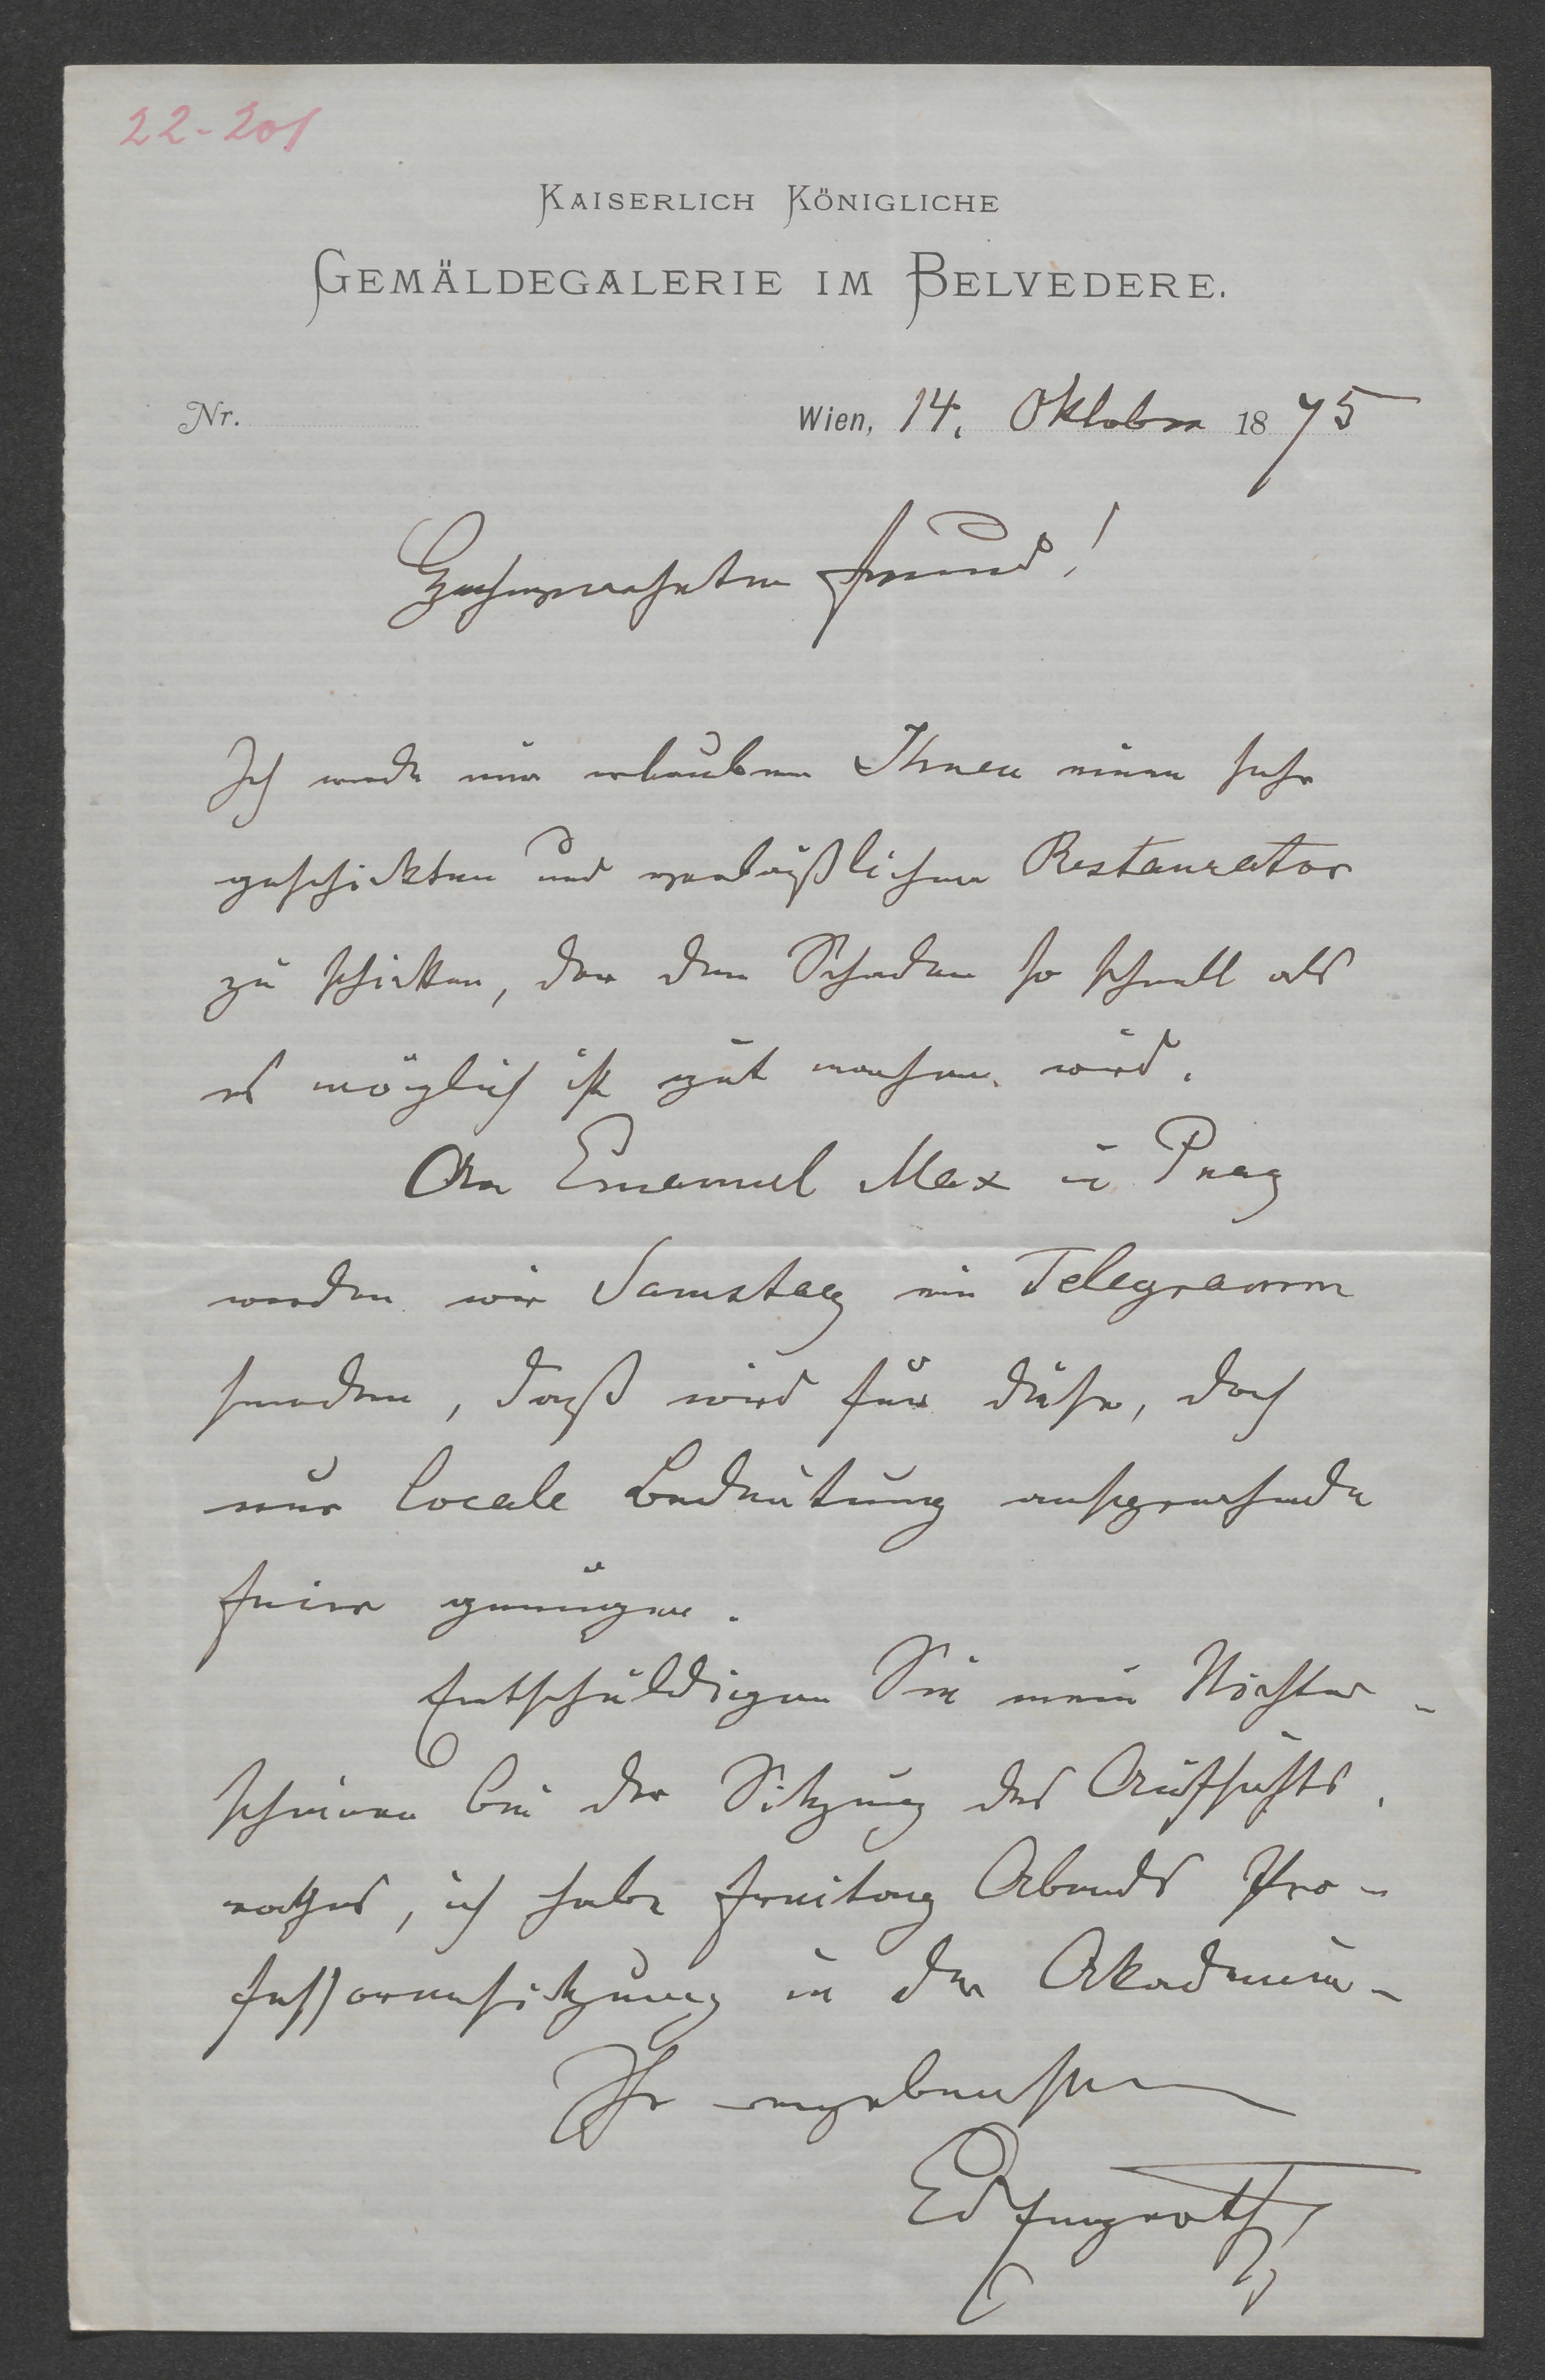 22-201
KAISERLICH KÖNIGLICHE
GEMÄLDEGALERIE IM BELVEDERE.
Nr. Wien, 14. Oktober 1875
Hochverehrter Freund!
Ich werde mir erlauben Ihnen einen sehr
geschickten und verläßlichen Restaurator
zu schicken, der den Schaden so schnell als
es möglich ist gut machen wird.
An Emanuel Max in Prag
werden wir Samstag ein Telegramm
senden, daß wird für diese, doch
nur locale Bedeutung ansprechende
Feier genügen.
Entschuldigen Sie mein Nichter-
scheinen bei der Sitzung des Aufsichts-
rathes, ich habe Freitag Abends Pro-
fessorensitzung in der Akademie-
Ihr ergebenster
Ed Engerth